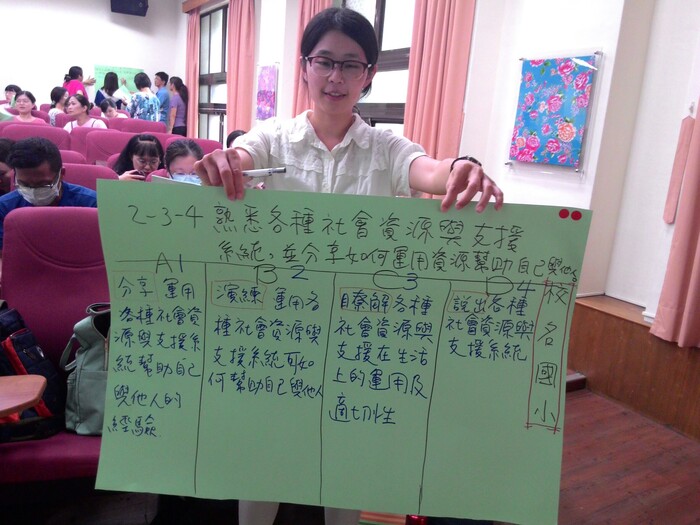 2-3-4 熟悉各種社會資源與支援
系統,並分享如何運用資源幫助自己與他人
A1
分享運用
各種社會資
源與支援系
統幫助自己
與他人的
經驗
B2
演練運用各
種社會資源與
支援系統可如
何幫助自己與他人
C3
瞭解各種
社會資源與
支援在生活
上的運用及
適切性
D4
說出各種
社會資源與
支援系統
校名國小